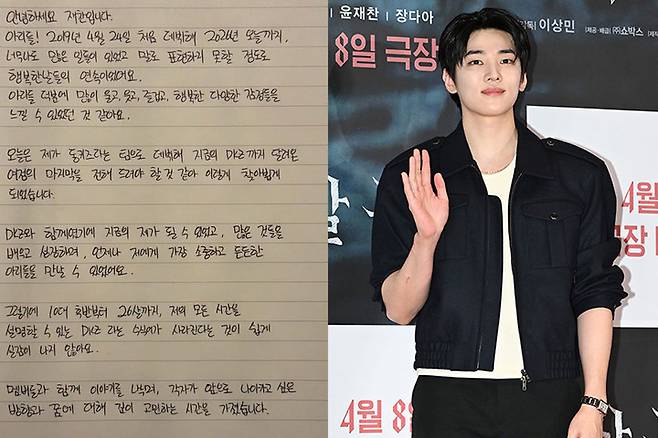 안녕하세요 재찬입니다.
아리들! 2019년 4월 24일 처음 데뷔해 2026년 오늘까지,
너무나도 많은 일들이 있었고 말로 표현하지 못할 정도로
행복한날들의 연속이었어요.
아리들 덕분에 많이 울고, 웃고, 즐겁고, 행복한 다양한 감정들을
느낄 수 있었던 것 같아요.
오늘은 제가 동키즈라는 팀으로 데뷔해 지금의 DKZ까지 달려온
여정의 마지막을 전해 드려야 할 것 같아 이렇게 찾아뵙게
되었습니다.
DKZ와 함께였기에 지금의 제가 될 수 있었고, 많은 것들을
배우고 성장하며, 언제나 저에게 가장 소중하고 든든한
아리들을 만날 수 있었어요.
그렇기에 10대 후반부터 26살까지, 저의 모든 시간을
설명할 수 있는 DKZ 라는 수식어가 사라진다는 것이 쉽게
실감이 나지 않아요.
멤버들과 함께 이야기를 나누며, 각자가 앞으로 나아가고 싶은
방향과 꿈에 대해 깊이 고민하는 시간을 가졌습니다.
| 윤재찬 | 장다아
이상민
|제공·배급| ㈜쇼박스
8일 극장
4월
극장
4월 8일